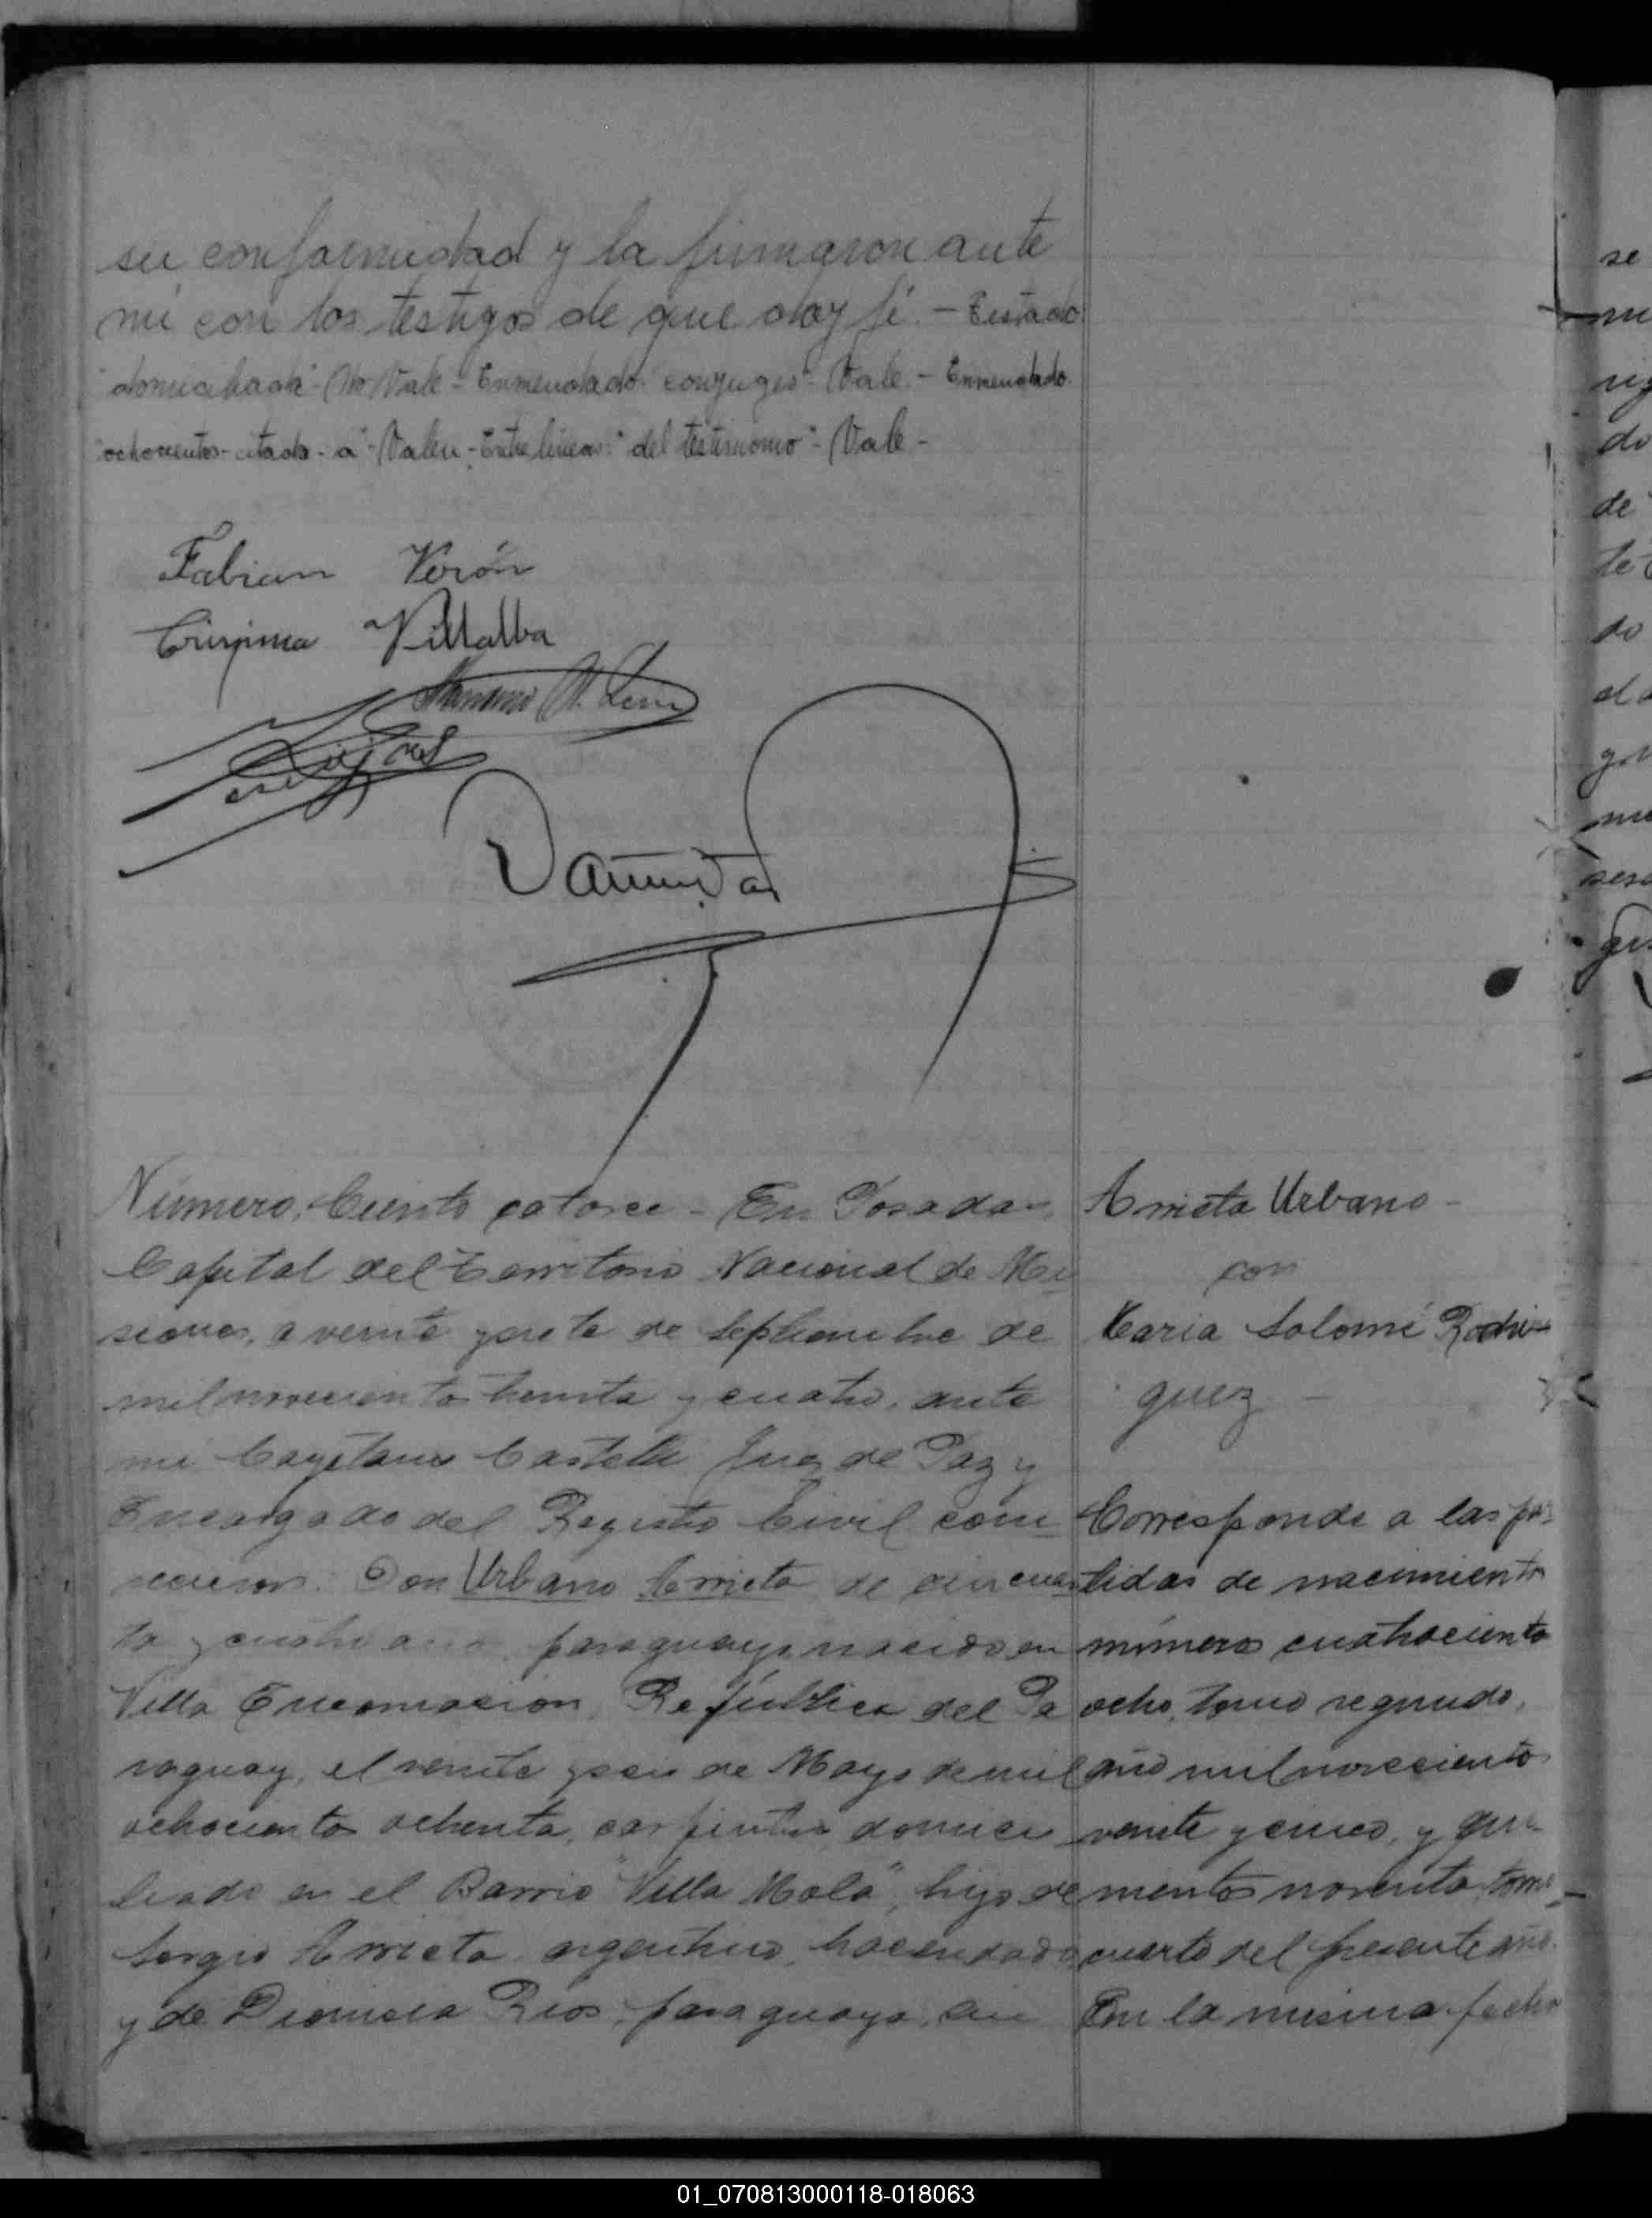 su conformidad y la firmaron ante
mí con los testigos de que doy fé. - Testado
"domiciliada" - No Vale - Enmendado: conjuges" - Vale. - Enmendado
"ochocientos - citada - a" - Valen - Entre lineas: "del testimonio" - Vale -
Fabian Verón
Crispina Villalba
Número, Ciento catorce - En Posadas,
Capital del Territorio Nacional de Mi-
siones, a veinte y siete de Septiembre de
mil novecientos treinta y cuatro, ante
mi Cayetano Castelli Juez de Paz y
Encargado del Registro Civil com-
parecieron: Don Urbano Arrieta de cincuen-
ta y cuatro años paraguayo, nacido en
Villa Encarnacion, República del Pa
raguay, el veinte y seis de Mayo de mil
ochocientos ochenta, carpintero, domici
liado en el Barrio "Villa Mola", hijo de
Sergio Arrieta argentino, hacendado
y de Dionisia Rios, paraguaya, sin
Arrieta Urbano -
con
Maria Salomé Rodri-
guez -
Corresponde a las par-
tidas de nacimiento
números cuatrociento
ocho, tomo segundo,
año mil novecientos
veinte y cinco, y qui-
nientos noventa, tomo
cuarto del presente año.
En la misma fecha
se
mi
do
de
do
01_070813000118-018063